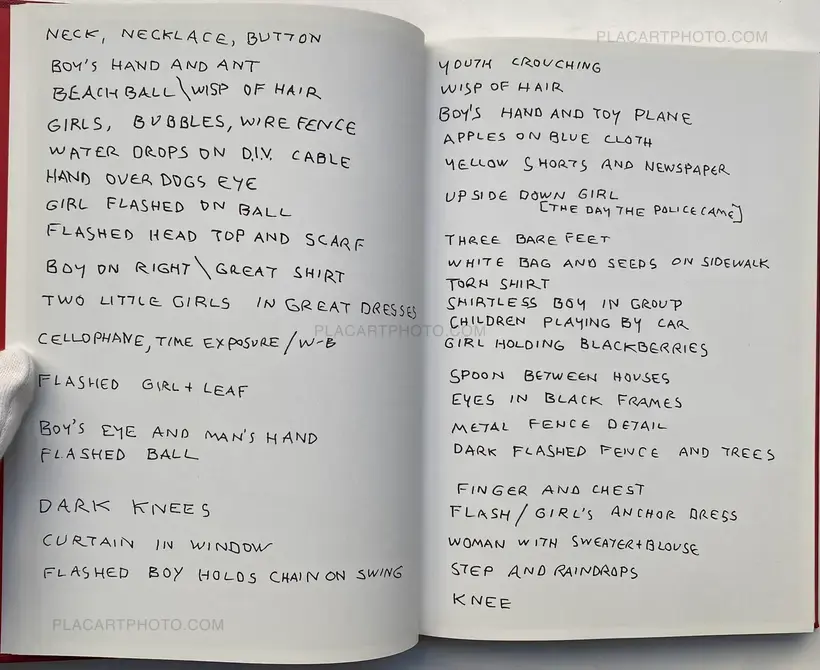 NECK, NECKLACE, BUTTON
BOY'S HAND AND ANT
BEACH BALL\WISP OF HAIR
GIRLS, BUBBLES, WIRE FENCE
WATER DROPS ON D.I.V. CABLE
HAND OVER DOGS EYE
GIRL FLASHED ON BALL
FLASHED HEAD TOP AND SCARF
BOY ON RIGHT\GREAT SHIRT
TWO LITTLE GIRLS IN GREAT DRESSES
CELLOPHANE, TIME EXPOSURE/W-B
FLASHED GIRL + LEAF
BOY'S EYE AND MAN'S HAND
FLASHED BALL
DARK KNEES
CURTAIN IN WINDOW
FLASHED BOY HOLDS CHAIN ON SWING
PLACARTPHOTO.COM
PLACARTPHOTO.COM
YOUTH CROUCHING
WISP OF HAIR
BOY'S HAND AND TOY PLANE
APPLES ON BLUE CLOTH
YELLOW SHORTS AND NEWSPAPER
UPSIDE DOWN GIRL
[THE DAY THE POLICE CAME]
THREE BARE FEET
WHITE BAG AND SEEDS ON SIDEWALK
TORN SHIRT
SHIRTLESS BOY IN GROUP
CHILDREN PLAYING BY CAR
PLACARTPHOTO.COM
GIRL HOLDING BLACKBERRIES
SPOON BETWEEN HOUSES
EYES IN BLACK FRAMES
METAL FENCE DETAIL
DARK FLASHED FENCE AND TREES
FINGER AND CHEST
FLASH/GIRL'S ANCHOR DRESS
WOMAN WITH SWEATER+BLOUSE
STEP AND RAINDROPS
KNEE